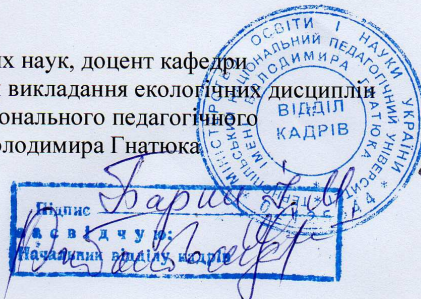 их наук, доцент кафедри
викладання екологічних дисциплін
онального педагогічного
олодимира Гнатюка
МІНІСТЕРСТВО ОСВІТИ І НАУКИ УКРАЇНИ
НАЦІОНАЛЬНИЙ ПЕДАГОГІЧНИЙ УНІВЕРСИТЕТ
ІМЕНІ ВОЛОДИМИРА ГНАТЮКА
ВІДДІЛ
КАДРІВ
Підпис
засвідчую:
Начальник відділу кадрів